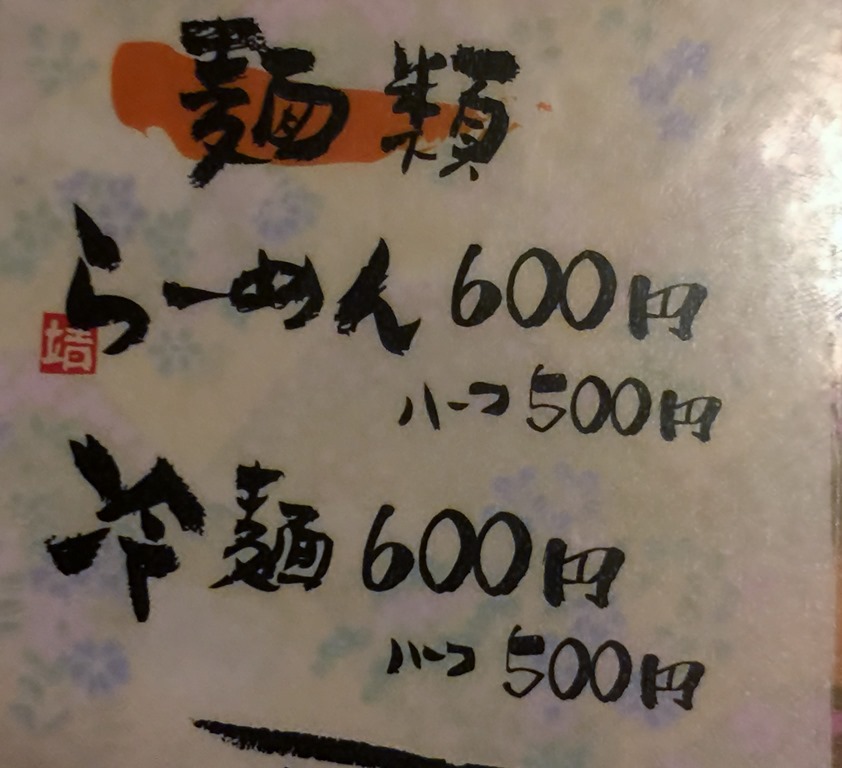 麺類
らーめん 600円
ハーフ 500円
冷麺 600円
ハーフ 500円